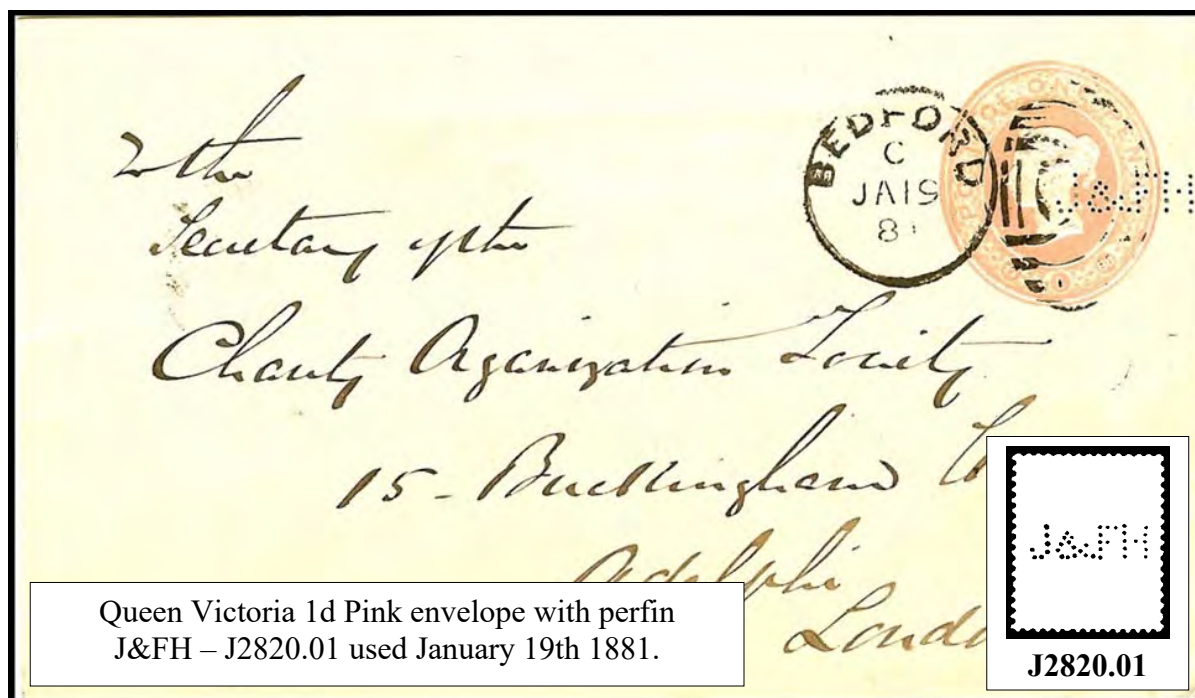 To the
Secretary of the
Charity Organization Society
15 - Buckingham
Adelphi
BEDFORD
C
JA 19
81
J&FH
J&FH
J2820.01
Queen Victoria 1d Pink envelope with perfin
J&FH – J2820.01 used January 19th 1881.